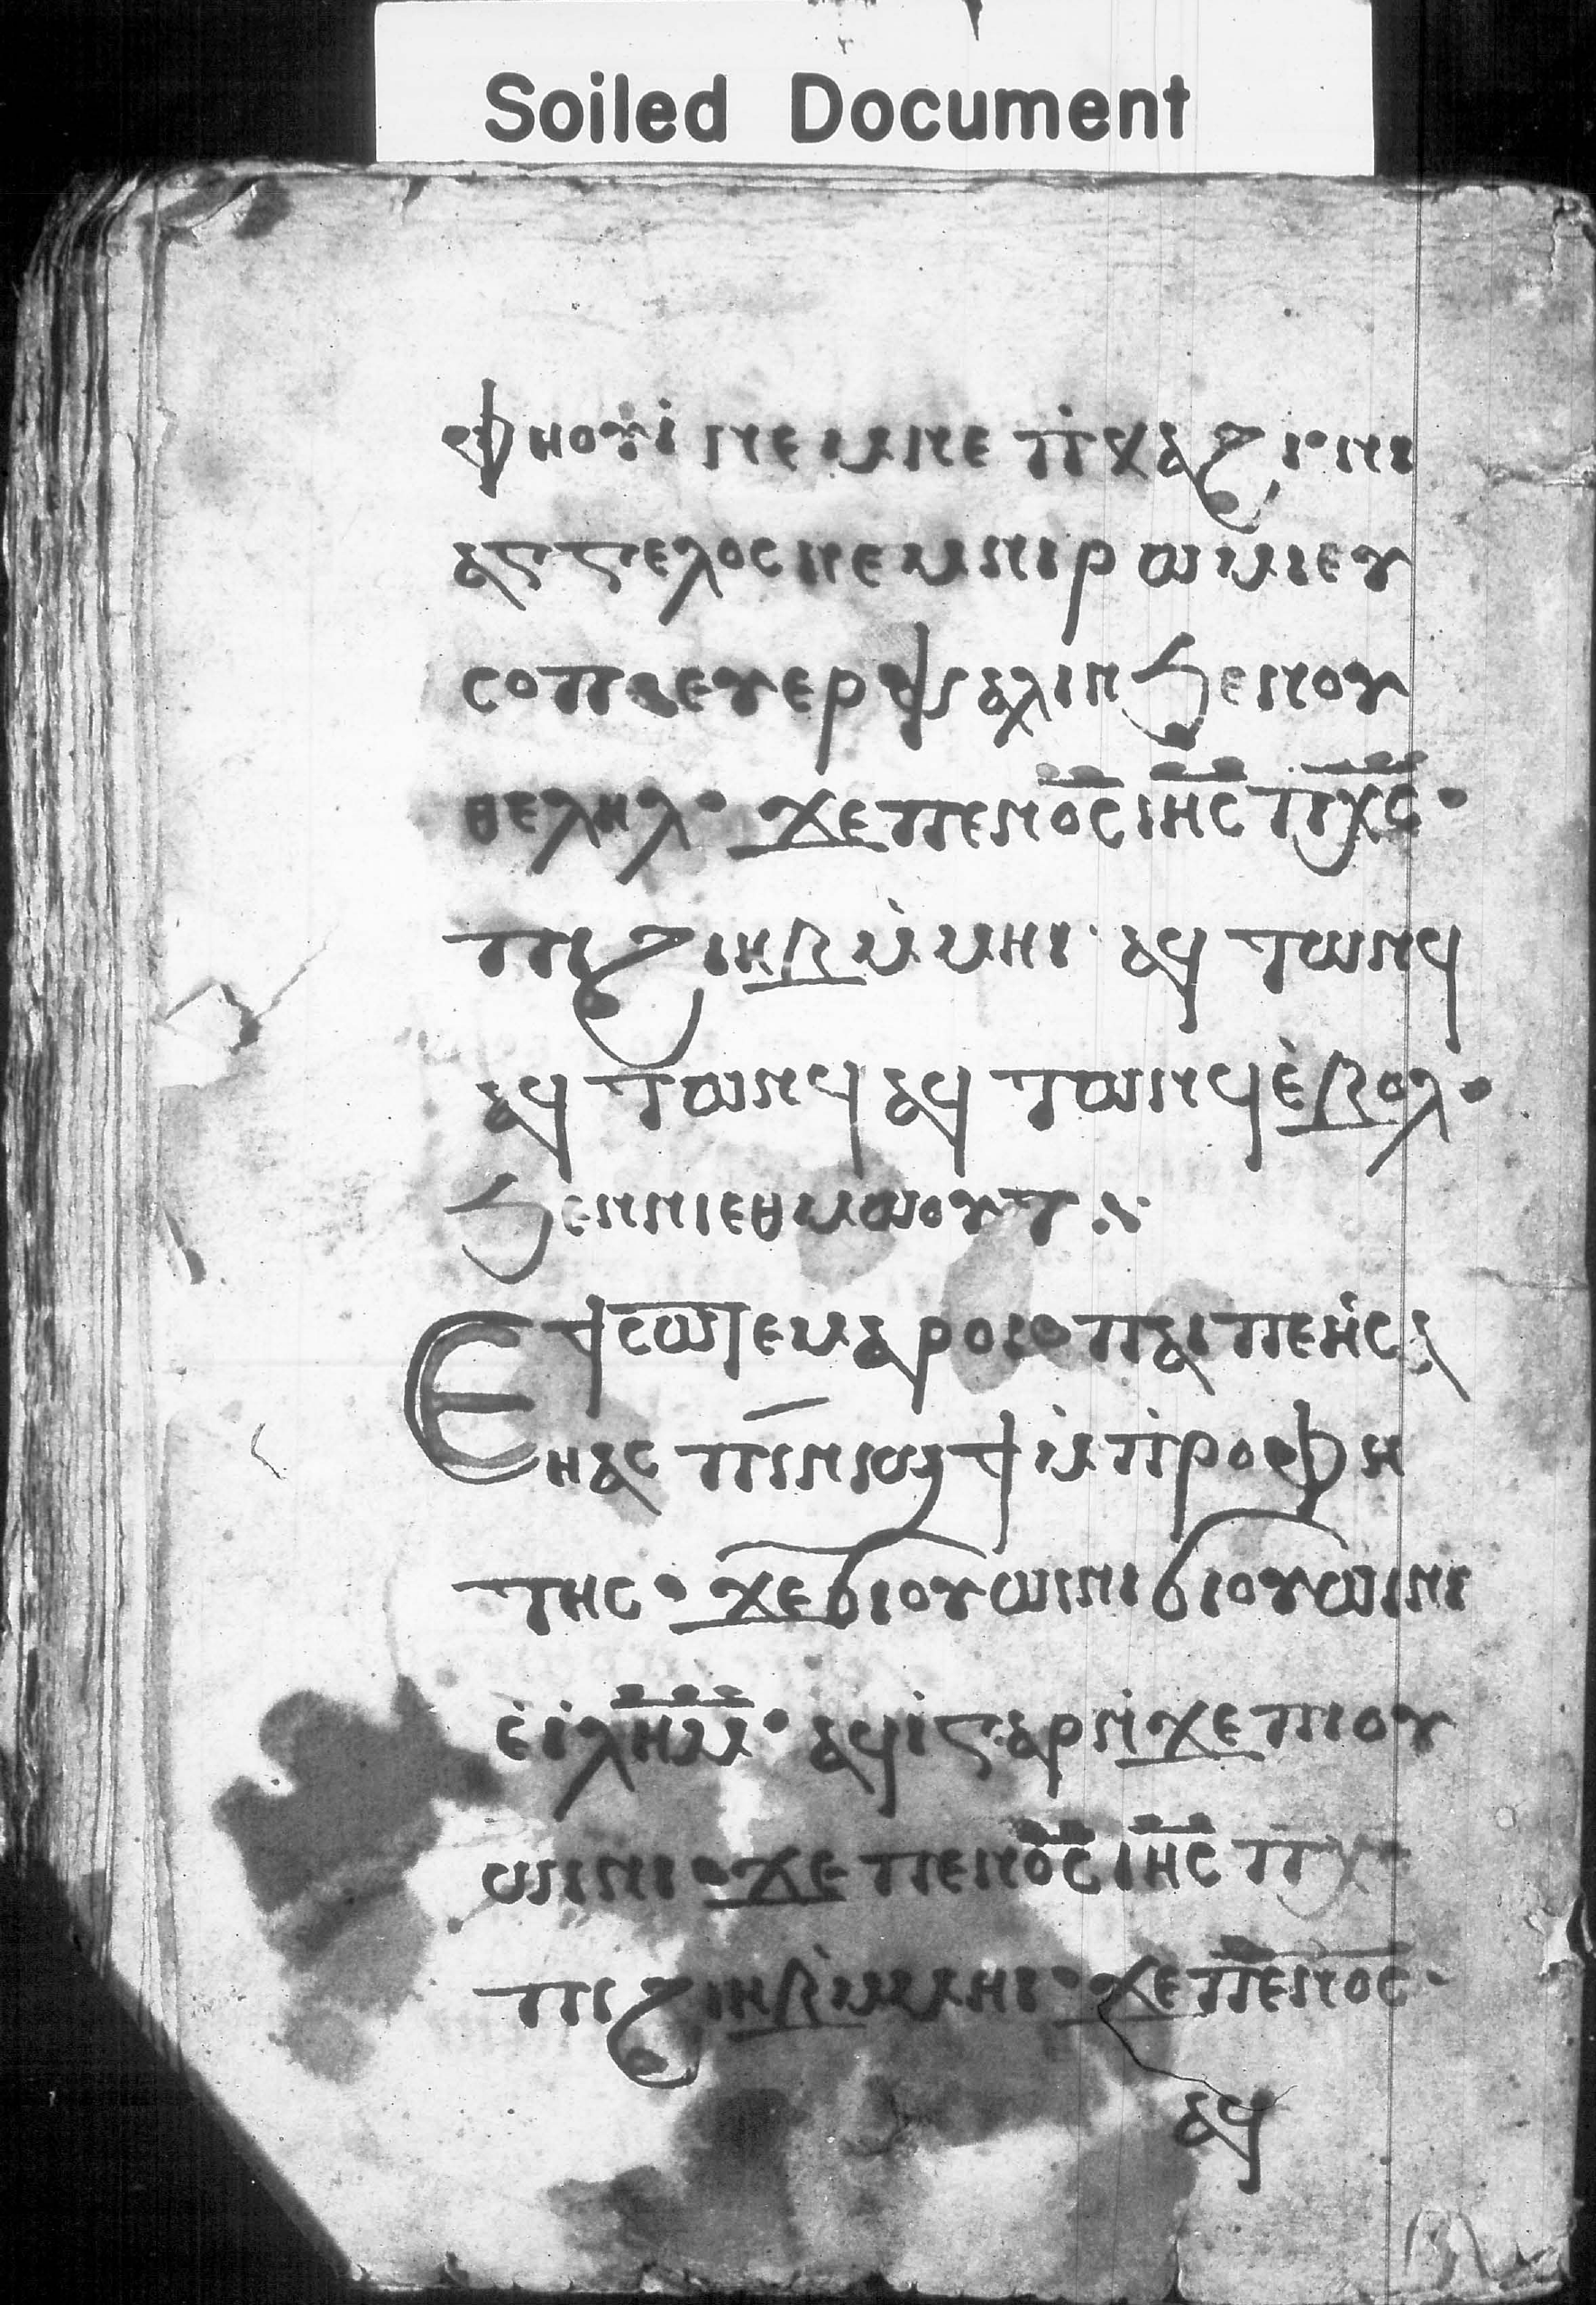 Soiled Document
ⲫⲏⲟⲩⲓ̀ ⲛⲉⲙⲛⲉ ⲡ̀ⲕⲁϩⲓ ⲛⲓ
ⲁⲅⲅⲉⲗⲟⲥ ⲛⲉⲙⲛⲓⲣⲱⲙⲓ ⲉⲩ
ⲥⲟⲡ ⲉⲩⲉⲣⲯⲁⲗⲓⲛ ϧⲉⲛⲟⲩ
ⲑⲉⲗⲏⲗ· ϫⲉⲡⲉⲛⲟ̅ⲥ̅ ⲓ̅ⲏ̅ⲥ̅ ⲡ̅ⲭ̅ⲥ̅·
ⲡⲓϩⲓⲏⲃ ⲙ̀ⲙⲏⲓ· ⲁϥⲧⲱⲛϥ
ⲁϥⲧⲱⲛϥ ⲁϥⲧⲱⲛϥ ⲉ̀ⲃⲟⲗ·
ϧⲉⲛⲛⲓⲉⲑⲙⲱⲟⲩⲧ
Ⲉϥⲥⲱⲧⲉⲙ ⲁⲣⲟⲓ· ⲡⲁⲓⲡⲉ ⲛ̀ⲥⲁ
ⲏⲁⲥ ⲡⲓⲛⲓϣϯ ⲙ̀ⲡⲣⲟⲫⲏ
ⲧⲏⲥ· ϫⲉϭⲓⲟⲩⲱⲓⲛⲓ ϭⲓⲟⲩⲱⲓⲛⲓ
ⲉ̀ⲓ̀ⲗ̅ⲏ̅ⲙ̅· ⲁϥⲓ̀ ⲅⲁⲣ ⲛ̀ϫⲉ ⲡⲓⲟⲩ
ⲱⲓⲛⲓ· ϫⲉ ⲡⲉⲛⲟ̅ⲥ̅ ⲓ̅ⲏ̅ⲥ̅ ⲡ̅ⲭ̅
ⲡⲓϩⲓⲏⲃ ⲙ̀ⲙⲏⲓ· ϫⲉ ⲡⲉⲛⲟ̅ⲥ̅·
ⲁϥ